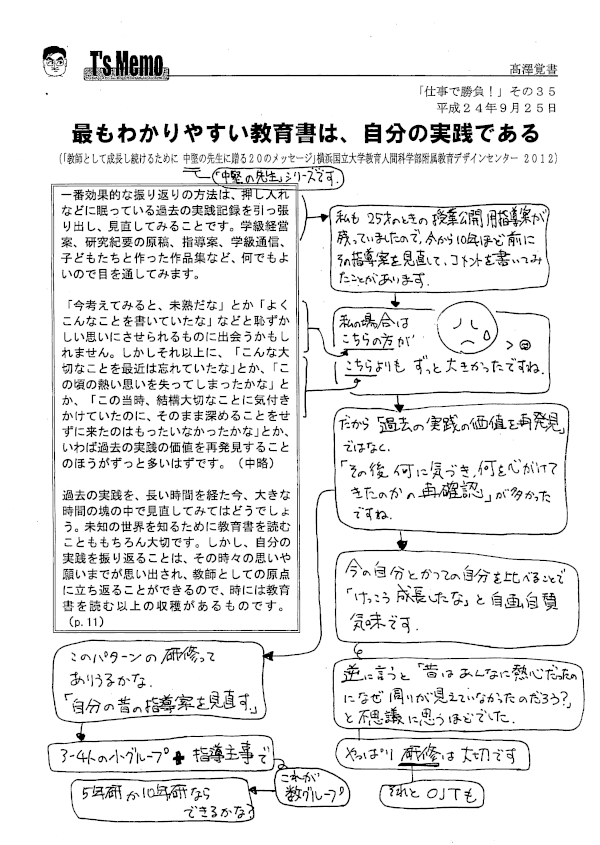 T's Memo
髙澤覚書
「仕事で勝負！」その３５
平成２４年９月２５日
最もわかりやすい教育書は、自分の実践である
(「教師として成長し続けるために 中堅の先生に贈る２０のメッセージ」横浜国立大学教育人間科学部附属教育デザインセンター 2012)
「中堅の先生」シリーズです.
一番効果的な振り返りの方法は、押し入れ
などに眠っている過去の実践記録を引っ張
り出し、見直してみることです。学級経営
案、研究紀要の原稿、指導案、学級通信、
子どもたちと作った作品集など、何でもよ
いので目を通してみます。
「今考えてみると、未熟だな」とか「よく
こんなことを書いていたな」などと恥ずか
しい思いにさせられるものに出会うかもし
れません。しかしそれ以上に、「こんな大
切なことを最近は忘れていたな」とか、「こ
の頃の熱い思いを失ってしまったかな」と
か、「この当時、結構大切なことに気付き
かけていたのに、そのまま深めることをせ
ずに来たのはもったいなかったかな」とか、
いわば過去の実践の価値を再発見すること
のほうがずっと多いはずです。（中略）
過去の実践を、長い時間を経た今、大きな
時間の塊の中で見直してみてはどうでしょ
う。未知の世界を知るために教育書を読む
ことももちろん大切です。しかし、自分の
実践を振り返ることは、その時々の思いや
願いまでが思い出され、教師としての原点
に立ち返ることができるので、時には教育
書を読む以上の収穫があるものです。
(p.11)
私も 25才のときの 授業公開用指導案が
残っていましたので、今から10年ほど前に
その指導案を見直して、コメントを書いてみ
たことがあります.
私の場合は
こちらの方が
>
こちらよりも ずっと大きかったですね.
だから「過去の実践の価値を再発見」
ではなく.
「その後 何に気づき、何を心がけて
きたのかの再確認」が多かった
ですね.
今の自分とかつての自分を比べることで
「けっこう成長したな」と自画自賛
気味です.
逆に言うと「昔はあんなに熱心だったの
になぜ周りが見えていなかったのだろう？」
と不思議に思うほどでした.
やっぱり 研修は大切です
それと OJTも
このパターンの研修って
ありうるかな.
「自分の昔の指導案を見直す.」
3-4人の小グループ + 指導主事で
これが
数グループ
5年研か10年研なら
できるかな?